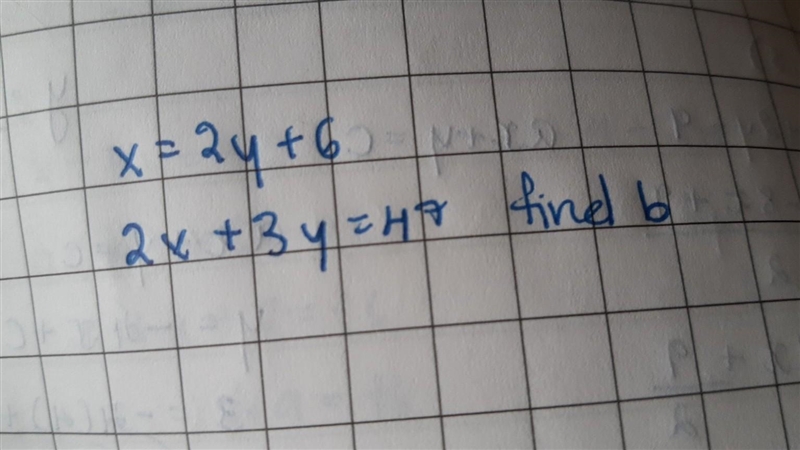 x = 2y + 6
2x + 3y = 47 find b